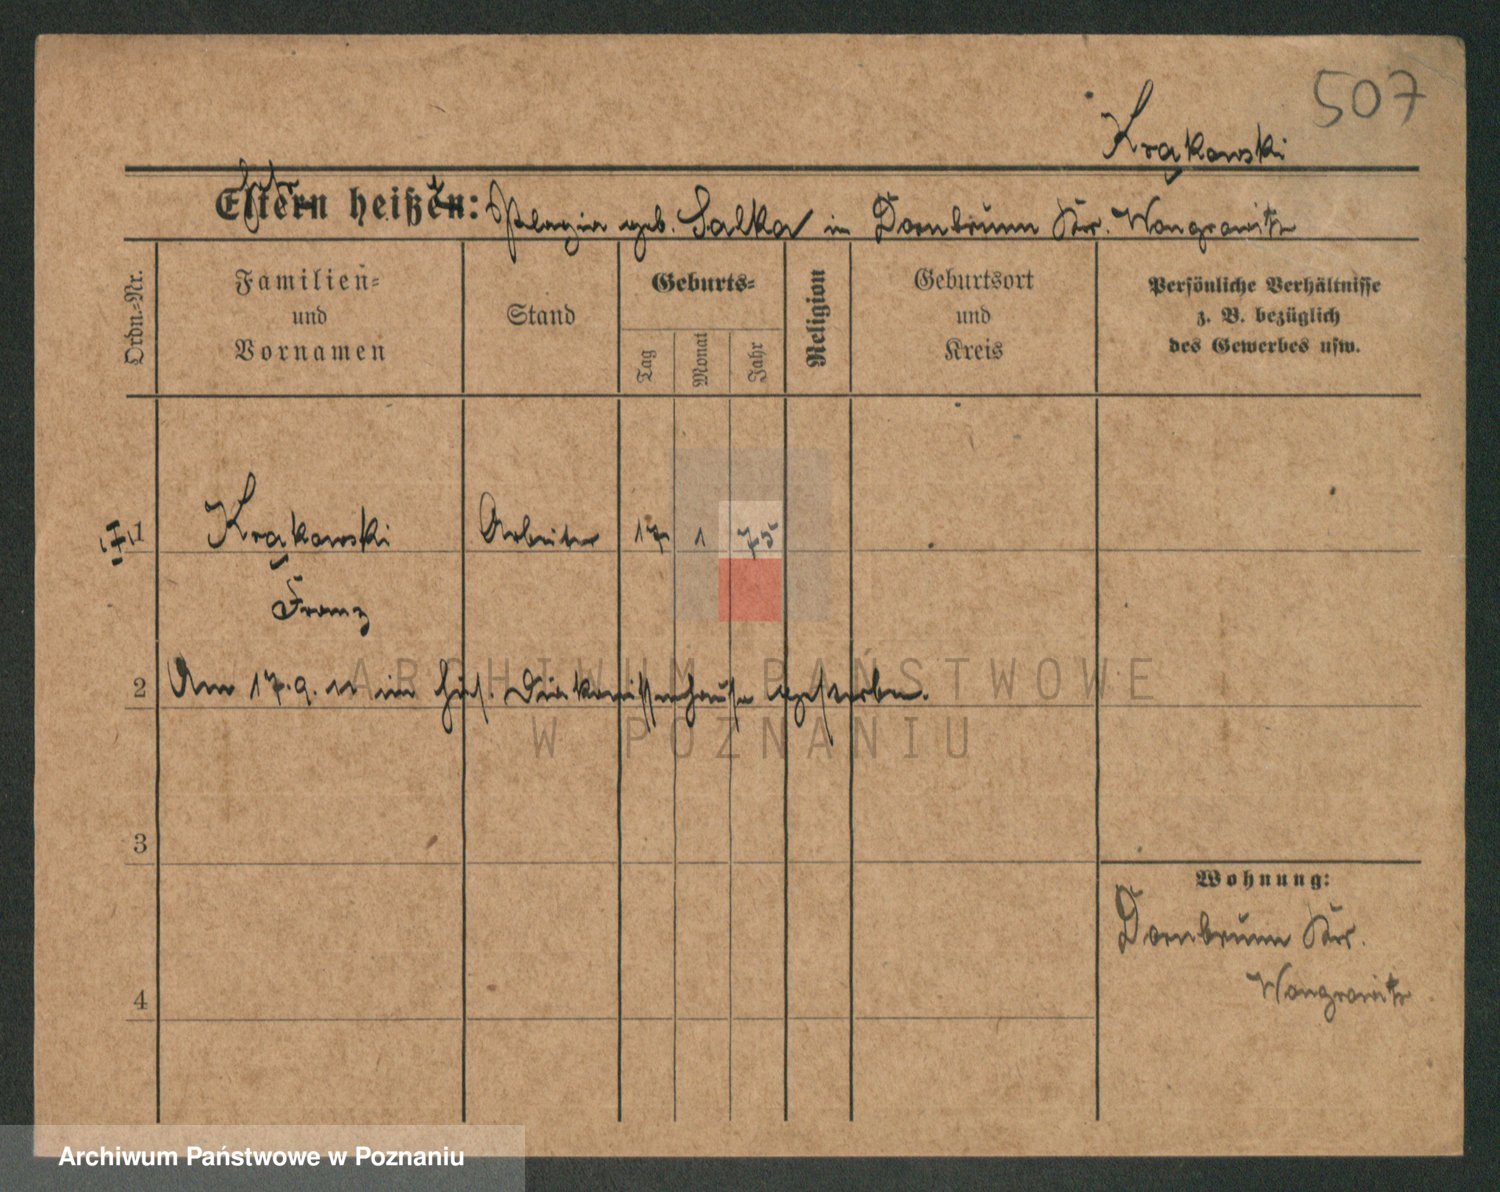 507
Krąkowski
Eltern heißen: Pelagia geb. Salka in Dornbrunn Kr. Wongrowitz
Ordn.-Nr.
Familien-
und
Vornamen
Stand
Geburts-
Tag
Monat
Jahr
Religion
Geburtsort
und
Kreis
Persönliche Verhältnisse
z. B. bezüglich
des Gewerbes usw.
1 Krąkowski Arbeiter 17 1 75
Franz
2 Am 17. 9. 11 im hies. Diakonissenhause gestorben.
ARCHIWUM PAŃSTWOWE
W POZNANIU
3
Wohnung:
Dornbrunn Kr.
Wongrowitz
4
Archiwum Państwowe w Poznaniu